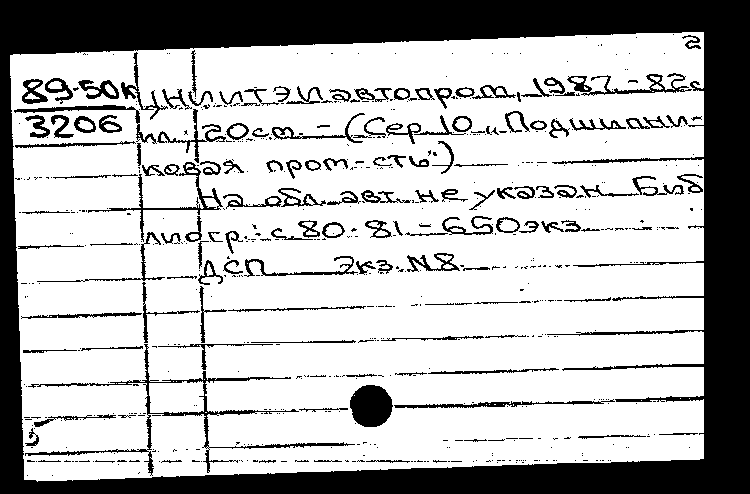 2
89-50к ЦНИИТЭИавтопром, 1987. - 82с
3206 ил.; 20см. - (Сер. 10 „Подшипни-
ковая пром-сть")
На обл. авт. не указан. Биб
лиогр.: с. 80-81 - 650экз
ДСП Экз. N8.
5